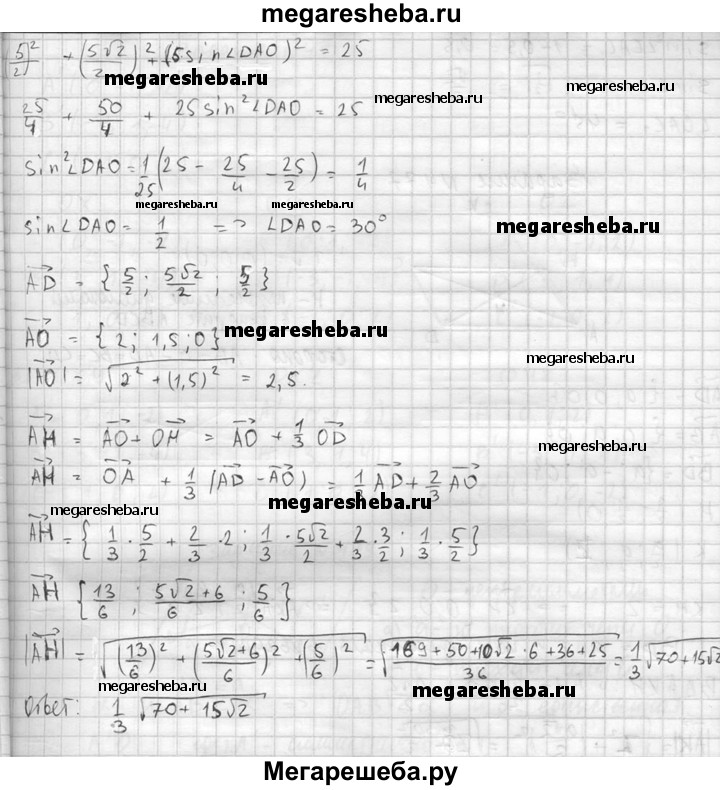 megaresheba.ru
(5/2)² + (5√2/2)² + (5 sin∠DAO)² = 25
megaresheba.ru
25/4 + 50/4 + 25 sin²∠DAO = 25
megaresheba.ru
megaresheba.ru
sin²∠DAO = 1/25 (25 - 25/4 - 25/2) = 1/4
megaresheba.ru megaresheba.ru
sin∠DAO = 1/2 => ∠DAO = 30°
megaresheba.ru
AD→ = {5/2; 5√2/2; 5/2}
AO→ = {2; 1,5; 0}
megaresheba.ru
megaresheba.ru
|AO→| = √(2² + (1,5)²) = 2,5.
AH→ = AO→ + OH→ = AO→ + 1/3 OD→
megaresheba.ru
AH→ = OA→ + 1/3 (AD→ - AO→) = 1/3 AD→ + 2/3 AO→
megaresheba.ru
megaresheba.ru
AH→ = {1/3 · 5/2 + 2/3 · 2; 1/3 · 5√2/2 + 2/3 · 3/2; 1/3 · 5/2}
megaresheba.ru
AH→ {13/6; (5√2+6)/6; 5/6}
|AH→| = √((13/6)² + ((5√2+6)/6)² + (5/6)²) = √((169 + 50 + 10√2 · 6 + 36 + 25)/36) = 1/3 √(70 + 15√2
megaresheba.ru
megaresheba.ru
Ответ: 1/3 √(70 + 15√2)
Мегарешеба.ру